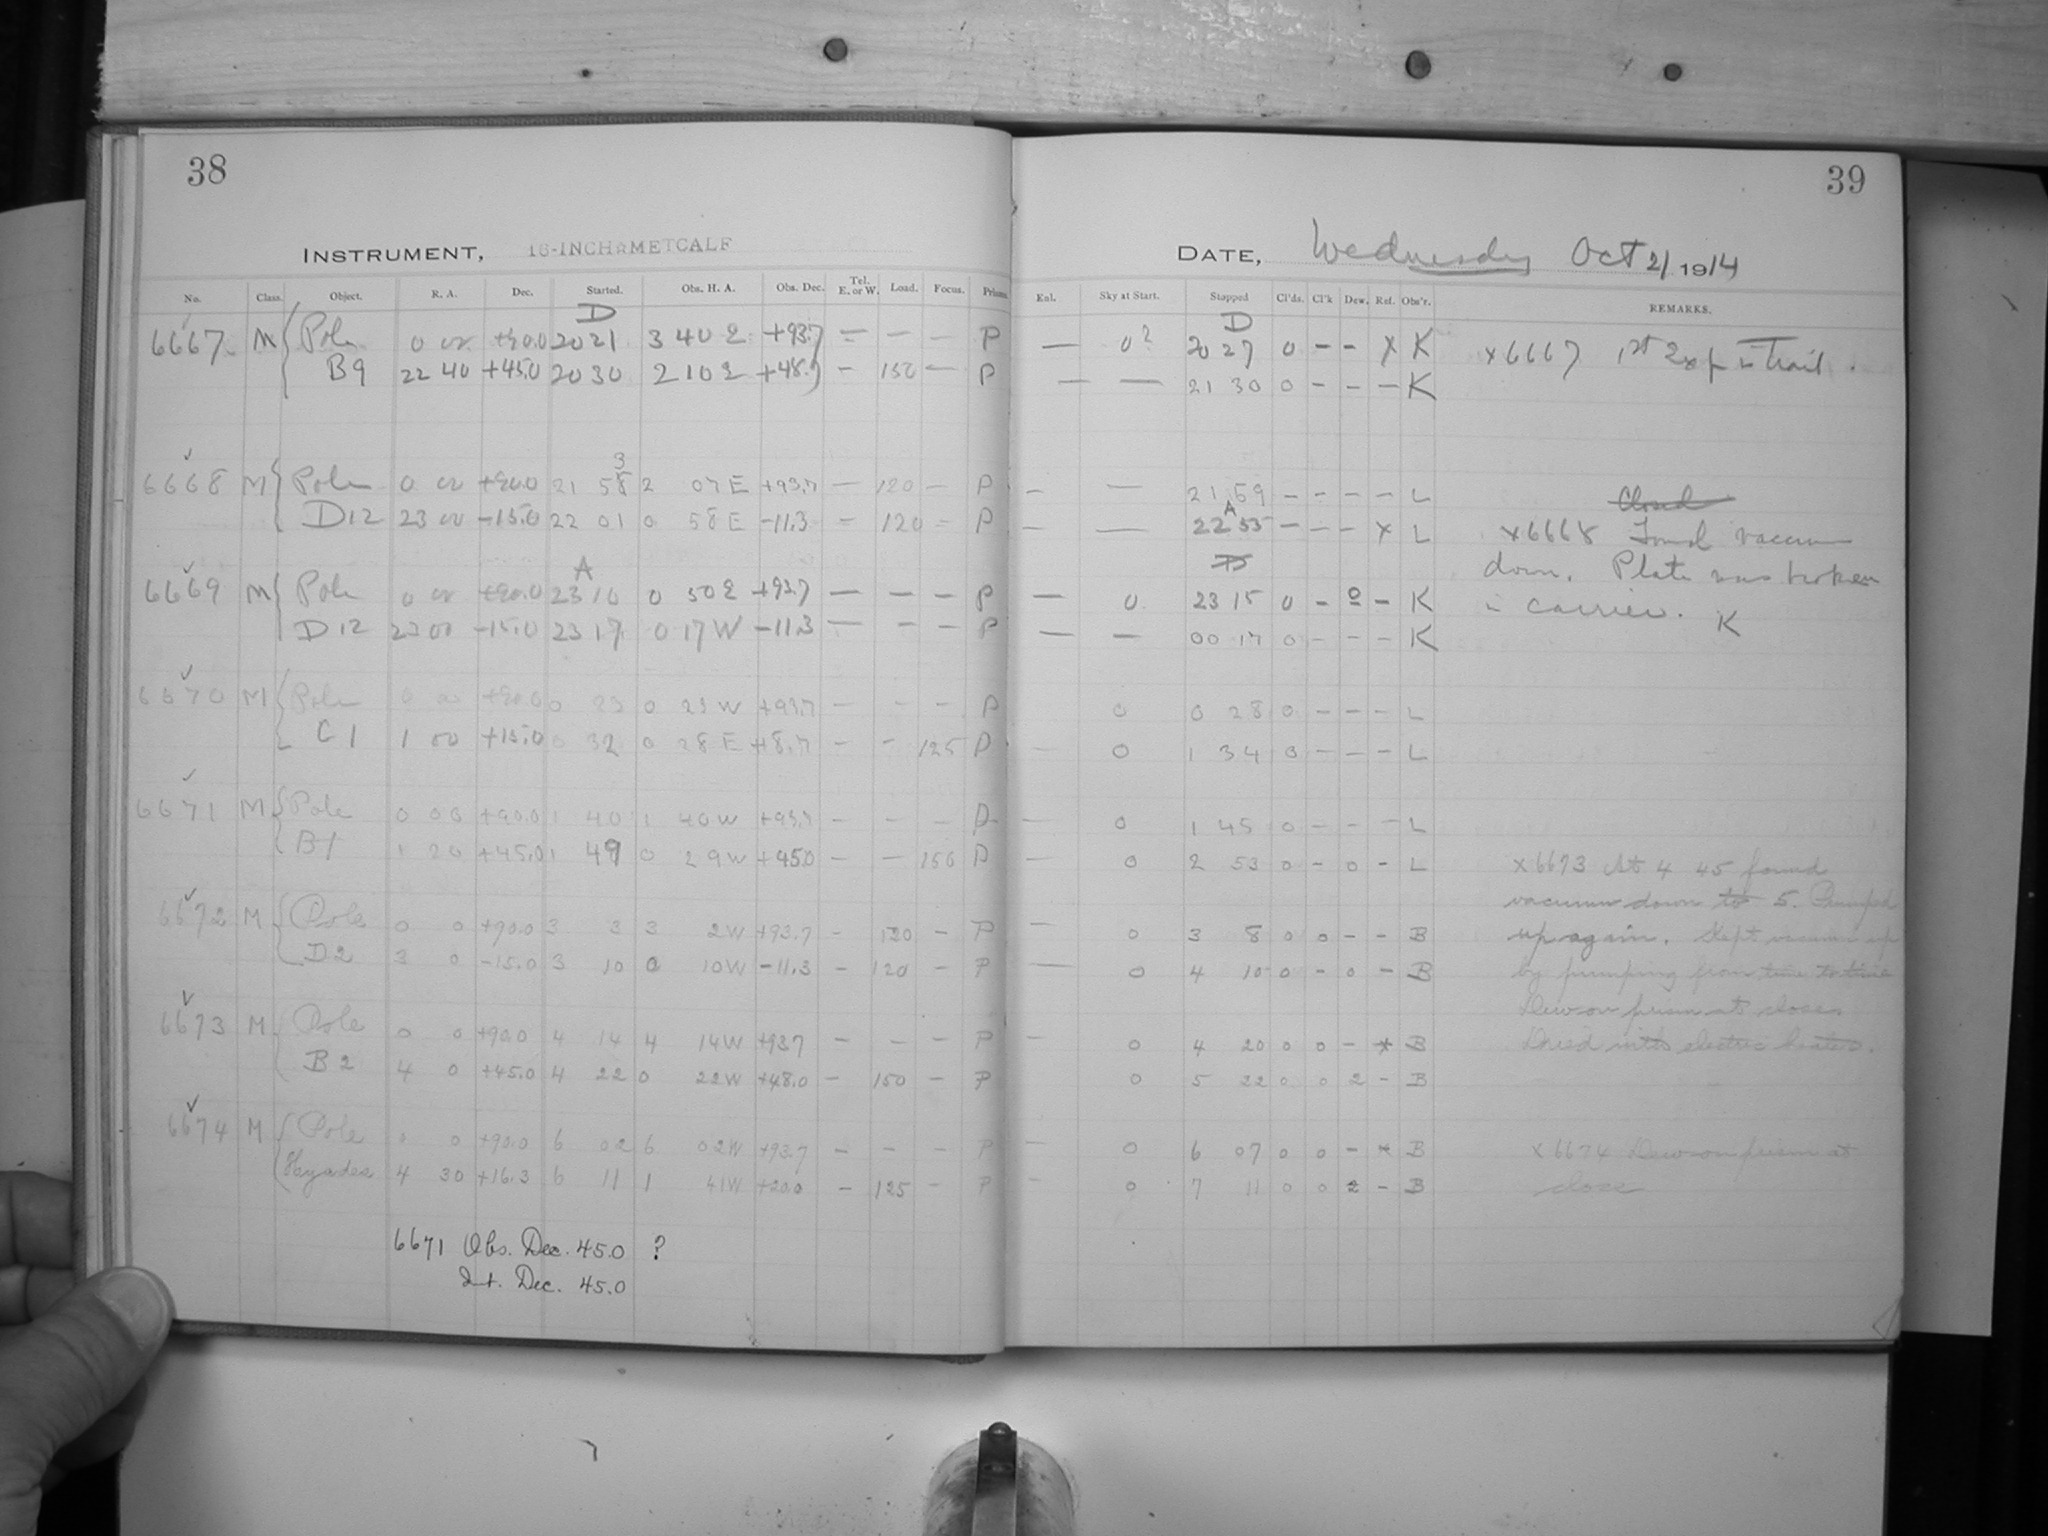 38
INSTRUMENT, 16-INCH METCALF
No. Class. Object. R. A. Dec. Started. Obs. H. A. Obs. Dec. Tel. E. or W. Load. Focus. Prisms.
D
6667 M Pole 0 00 +90.0 20 21 3 40 E +93.7 — — — P
B9 22 40 +45.0 20 30 2 10 E +48.7 — 150 — P
3
6668 M Pole 0 00 +90.0 21 58 2 07 E +93.7 — 120 — P
D12 23 00 -15.0 22 01 0 58 E -11.3 — 120 — P
A
6669 M Pole 0 00 +90.0 23 10 0 50 E +93.7 — — — P
D12 23 00 -15.0 23 17 0 17 W -11.3 — — — P
6670 M Pole 0 00 +90.0 0 23 0 23 W +93.7 — — — P
C1 1 00 +15.0 0 32 0 28 E +18.7 — — 125 P
6671 M Pole 0 00 +90.0 1 40 1 40 W +93.7 — — — P
B1 1 20 +45.0 1 49 0 29 W +45.0 — — 150 P
6672 M Pole 0 0 +90.0 3 3 3 2 W +93.7 — 120 — P
D2 3 0 -15.0 3 10 0 10 W -11.3 — 120 — P
6673 M Pole 0 0 +90.0 4 14 4 14 W +93.7 — — — P
B2 4 0 +45.0 4 22 0 22 W +48.0 — 150 — P
6674 M Pole 0 0 +90.0 6 02 6 02 W +93.7 — — — P
Hyades 4 30 +16.3 6 11 1 41 W +20.0 — 125 — P
6671 Obs. Dec. 45.0 ?
Int. Dec. 45.0
39
DATE, Wednesday Oct 21 1914
Exl. Sky at Start. Stopped Cl'ds. Cl'k Dew. Ref. Obs'r. REMARKS.
D
— 0? 20 27 0 — — x K x6667 1st Exp is Trail.
— — 21 30 0 — — — K
— — 21 59 — — — — L Closed
A
— — 22 55 — — — x L x6668 Found vacuum
down. Plate was broken
— 0 23 15 0 — 0 — K in carrier. K
— — 00 17 0 — — — K
0 0 28 0 — — — L
— 0 1 34 0 — — — L
— 0 1 45 0 — — — L
— 0 2 53 0 — 0 — L x6673 At 4 45 found
vacuum down to 5. Pumped
— 0 3 8 0 0 — — B up again. Kept vacuum up
— 0 4 10 0 — 0 — B by pumping from time to time
Dew on prism at close.
— 0 4 20 0 0 — * B Dried with electric heater.
0 5 22 0 0 2 — B
— 0 6 07 0 0 — * B x6674 Dew on prism at
— 0 7 11 0 0 2 — B close